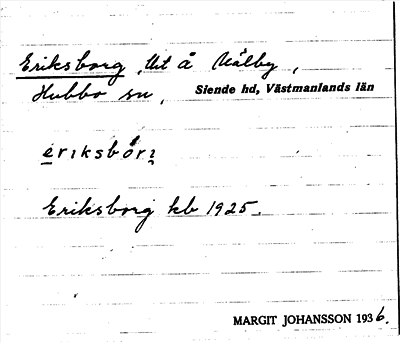 Eriksborg, Ut å Målby,
Hubbo sn, Siende hd, Västmanlands län
eriksbór
Eriksborg kb 1925.
MARGIT JOHANSSON 1936.